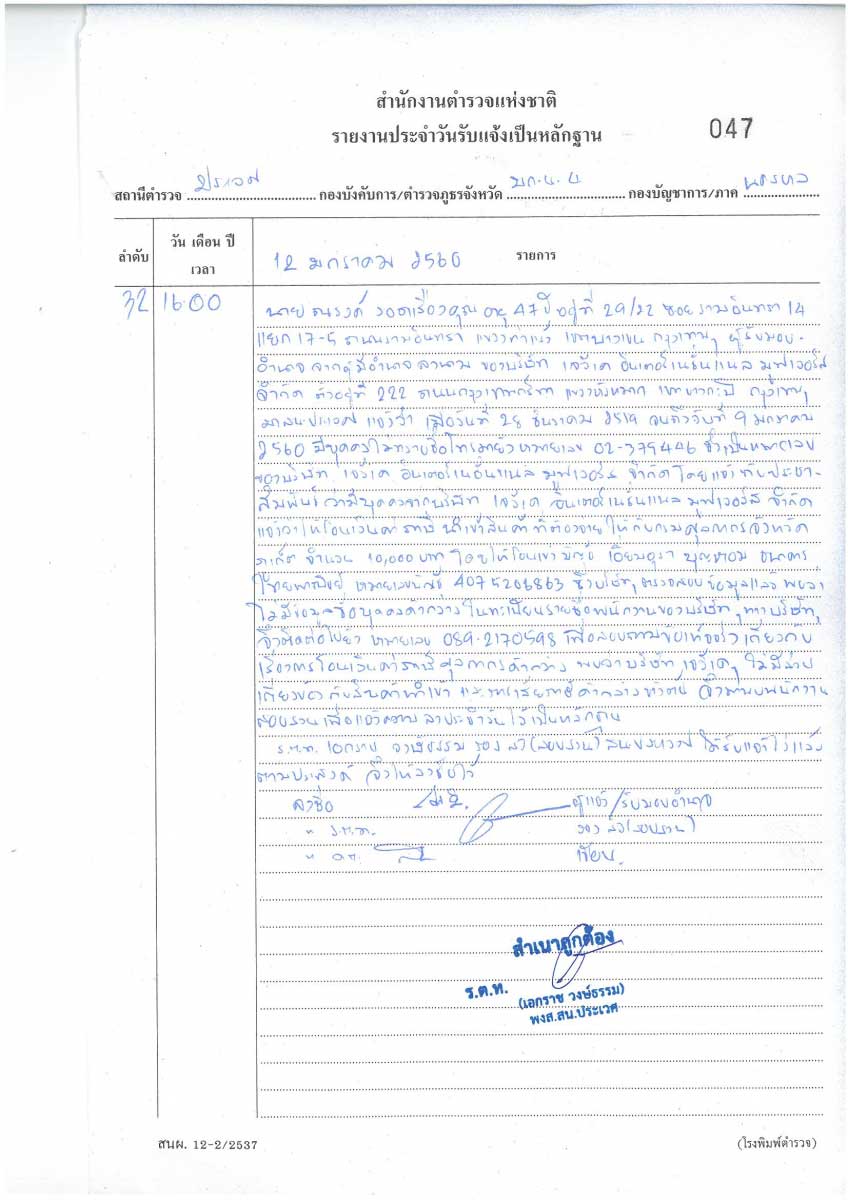 สำนักงานตำรวจแห่งชาติ
รายงานประจำวันรับแจ้งเป็นหลักฐาน
047
สถานีตำรวจ ประเวศ กองบังคับการ/ตำรวจภูธรจังหวัด บก.น.4 กองบัญชาการ/ภาค นครบาล
ลำดับ
วัน เดือน ปี
เวลา
12 มกราคม 2560 รายการ
32 16.00
นาย ณรงค์ รอดเรืองคุณ อายุ 47 ปี อยู่ที่ 29/22 ซอย รามอินทรา 14
แยก 17-5 ถนนรามอินทรา แขวงท่าแร้ง เขตบางเขน กรุงเทพฯ ผู้รับมอบ-
อำนาจ จากผู้มีอำนาจลงนาม ของบริษัท เจวีเค อินเตอร์เนชั่นแนล มูฟเวอร์ส
จำกัด ตั้งอยู่ที่ 222 ถนนกรุงเทพกรีฑา แขวงหัวหมาก เขตบางกะปิ กรุงเทพฯ
มาสน.ประเวศ แจ้งว่า เมื่อวันที่ 28 ธันวาคม 2519 จนถึงวันที่ 9 มกราคม
2560 มีบุคคลไม่ทราบชื่อโทรมายังหมายเลข 02-379446 ซึ่งเป็นหมายเลข
ของบริษัท เจวีเค อินเตอร์เนชั่นแนล มูฟเวอร์ส จำกัด โดยแจ้งกับประชา-
สัมพันธ์ ว่ามีบุคคลจากบริษัท เจวีเค อินเตอร์เนชั่นแนล มูฟเวอร์ส จำกัด
แจ้งว่าให้โอนเงินค่าภาษี นำเข้าสินค้า ที่ต้องจ่าย ให้กับกรมศุลกากรจังหวัด
ภูเก็ต จำนวน 10,000 บาท โดยให้โอนเข้าบัญชี บุญหอม ธนาคาร
ไทยพาณิชย์ หมายเลขบัญชี 4075206863 ซึ่งบริษัทฯ ตรวจสอบข้อมูลแล้ว พบว่า
ไม่มีข้อมูลชื่อบุคคลดังกล่าว ในทะเบียนรายชื่อพนักงานของบริษัทฯ ทางบริษัทฯ
จึงติดต่อไปยัง หมายเลข 089-2170598 เพื่อสอบถามข้อเท็จจริง เกี่ยวกับ
เรื่องการโอนเงินค่าภาษีศุลกากรดังกล่าว พบว่าบริษัท เจวีเคฯ ไม่มีส่วน
เกี่ยวข้อง กับสินค้านำเข้า และการเสียภาษีดังกล่าว จึงมาพบพนักงาน
สอบสวนเพื่อแจ้งความ ลงประจำวันไว้เป็นหลักฐาน
ร.ต.ท. เอกราช วงษ์ธรรม รอง สว.(สอบสวน) สน.ประเวศ ได้รับแจ้งไว้แล้ว
ตามประสงค์ จึงให้ลงชื่อไว้
ลงชื่อ ผู้แจ้ง/รับมอบอำนาจ
" ร.ต.ท. รอง สว.(สอบสวน)
" ด.ต. เขียน.
สำเนาถูกต้อง
ร.ต.ท.
(เอกราช วงษ์ธรรม)
พงส.สน.ประเวศ
สนผ. 12-2/2537
(โรงพิมพ์ตำรวจ)